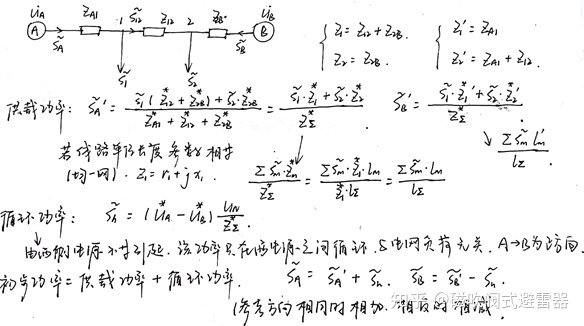 U̇_A Z_A1 1 S̃_12 Z_12 2 Z_2B U̇_B
A S̃_A S̃_B B
S̃_1 S̃_2
{ Z_1 = Z_12 + Z_2B { Z_1' = Z_A1
Z_2 = Z_2B. Z_2' = Z_A1 + Z_12
供载功率: S̃_A' = (S̃_1(Z*_12 + Z*_2B) + S̃_2·Z*_2B) / (Z*_A1 + Z*_12 + Z*_2B) = (S̃_1·Z*_1 + S̃_2·Z*_2) / Z*_Σ S̃_B' = (S̃_1·Z*_1' + S̃_2·Z*_2') / Z*_Σ
若线路单位长度参数相等
(均一网). Z_1 = r_1 + jx_1. ΣS̃_m·Z*_m / Z*_Σ = ΣS̃_m·Z*_1·l_m / Z*_1·l_Σ = ΣS̃_m·l_m / l_Σ ΣS̃_m l_m' / l_Σ
循环功率: S̃_n = (U*_A − U*_B) U_N / Z*_Σ.
由两侧电源不等引起. 该功率只在两电源之间循环. 与电网负荷无关. A→B为正方向.
初步功率 = 供载功率 + 循环功率. S̃_A = S̃_A' + S̃_n. S̃_B = S̃_B' − S̃_n.
(参考方向相同时相加. 相反时相减.
知乎 @磁吹阀式避雷器